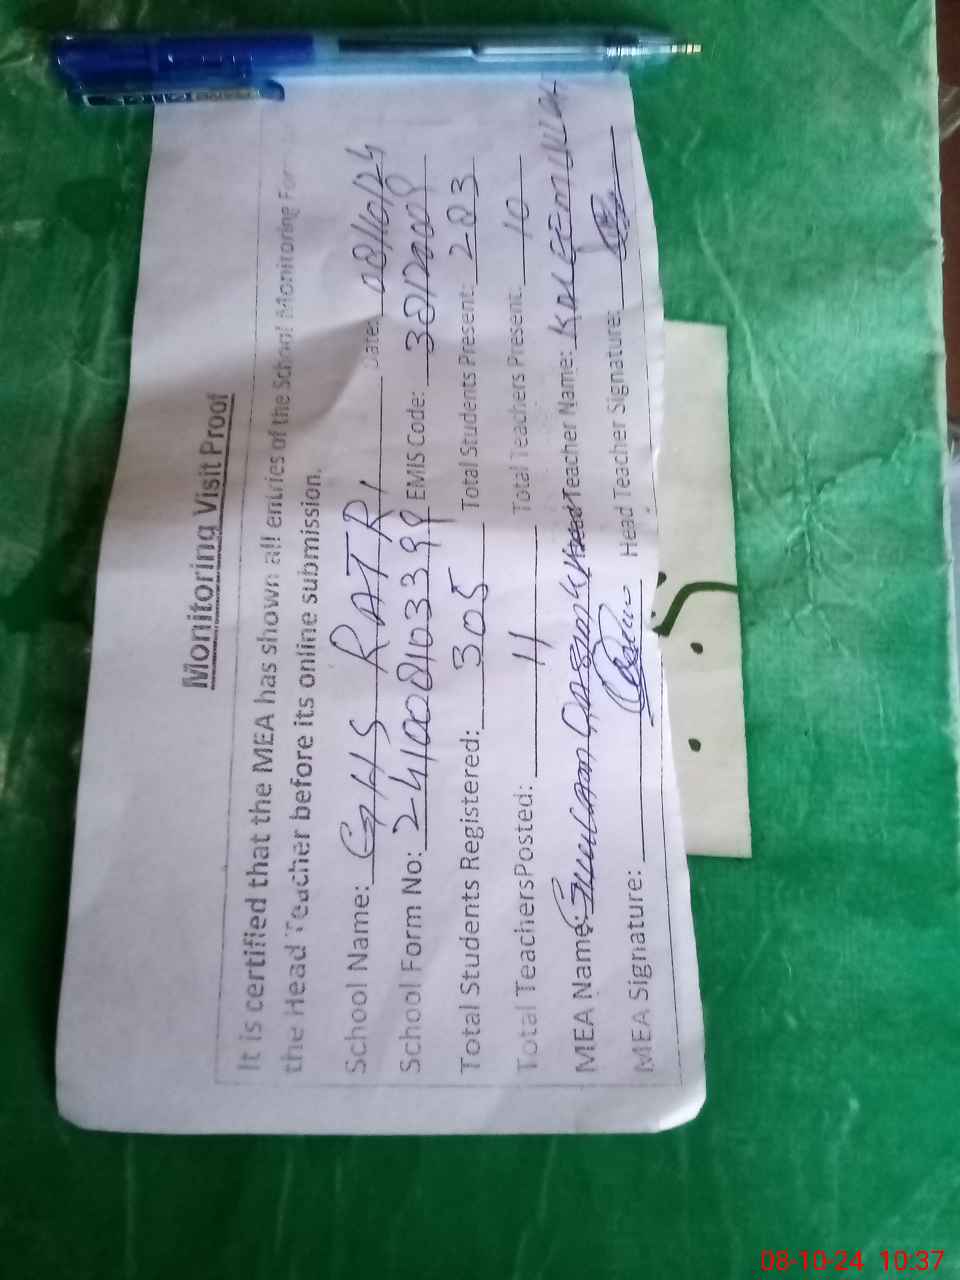 Monitoring Visit Proof
It is certified that the MEA has shown all entries of the School Monitoring For
the Head Teacher before its online submission.
School Name: GHS RATR, Date: 08/10/24
School Form No: 241008103399 EMIS Code:
Total Students Registered: 305 Total Students Present: 283
Total TeachersPosted: 11 Total Teachers Present: 10
MEA Name: Head Teacher Name: KALEEMULLAH
MEA Signature: Head Teacher Signature:
08-10-24 10:37